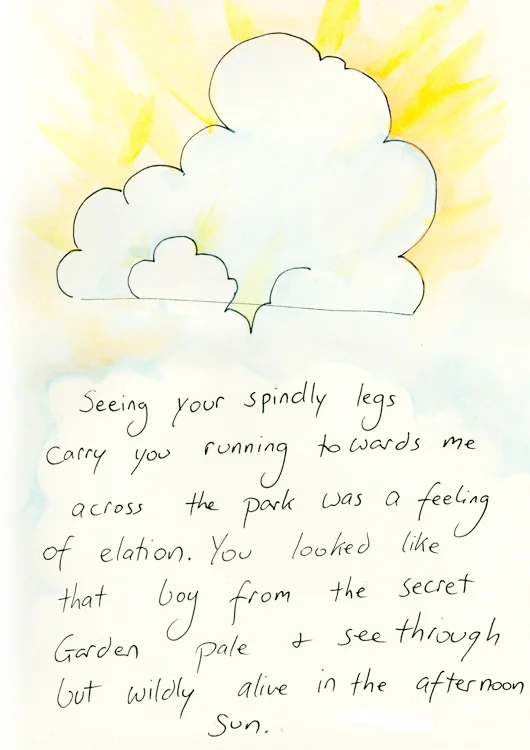 Seeing your spindly legs
carry you running towards me
across the park was a feeling
of elation. You looked like
that boy from the secret
Garden pale & see through
but wildly alive in the afternoon
Sun.